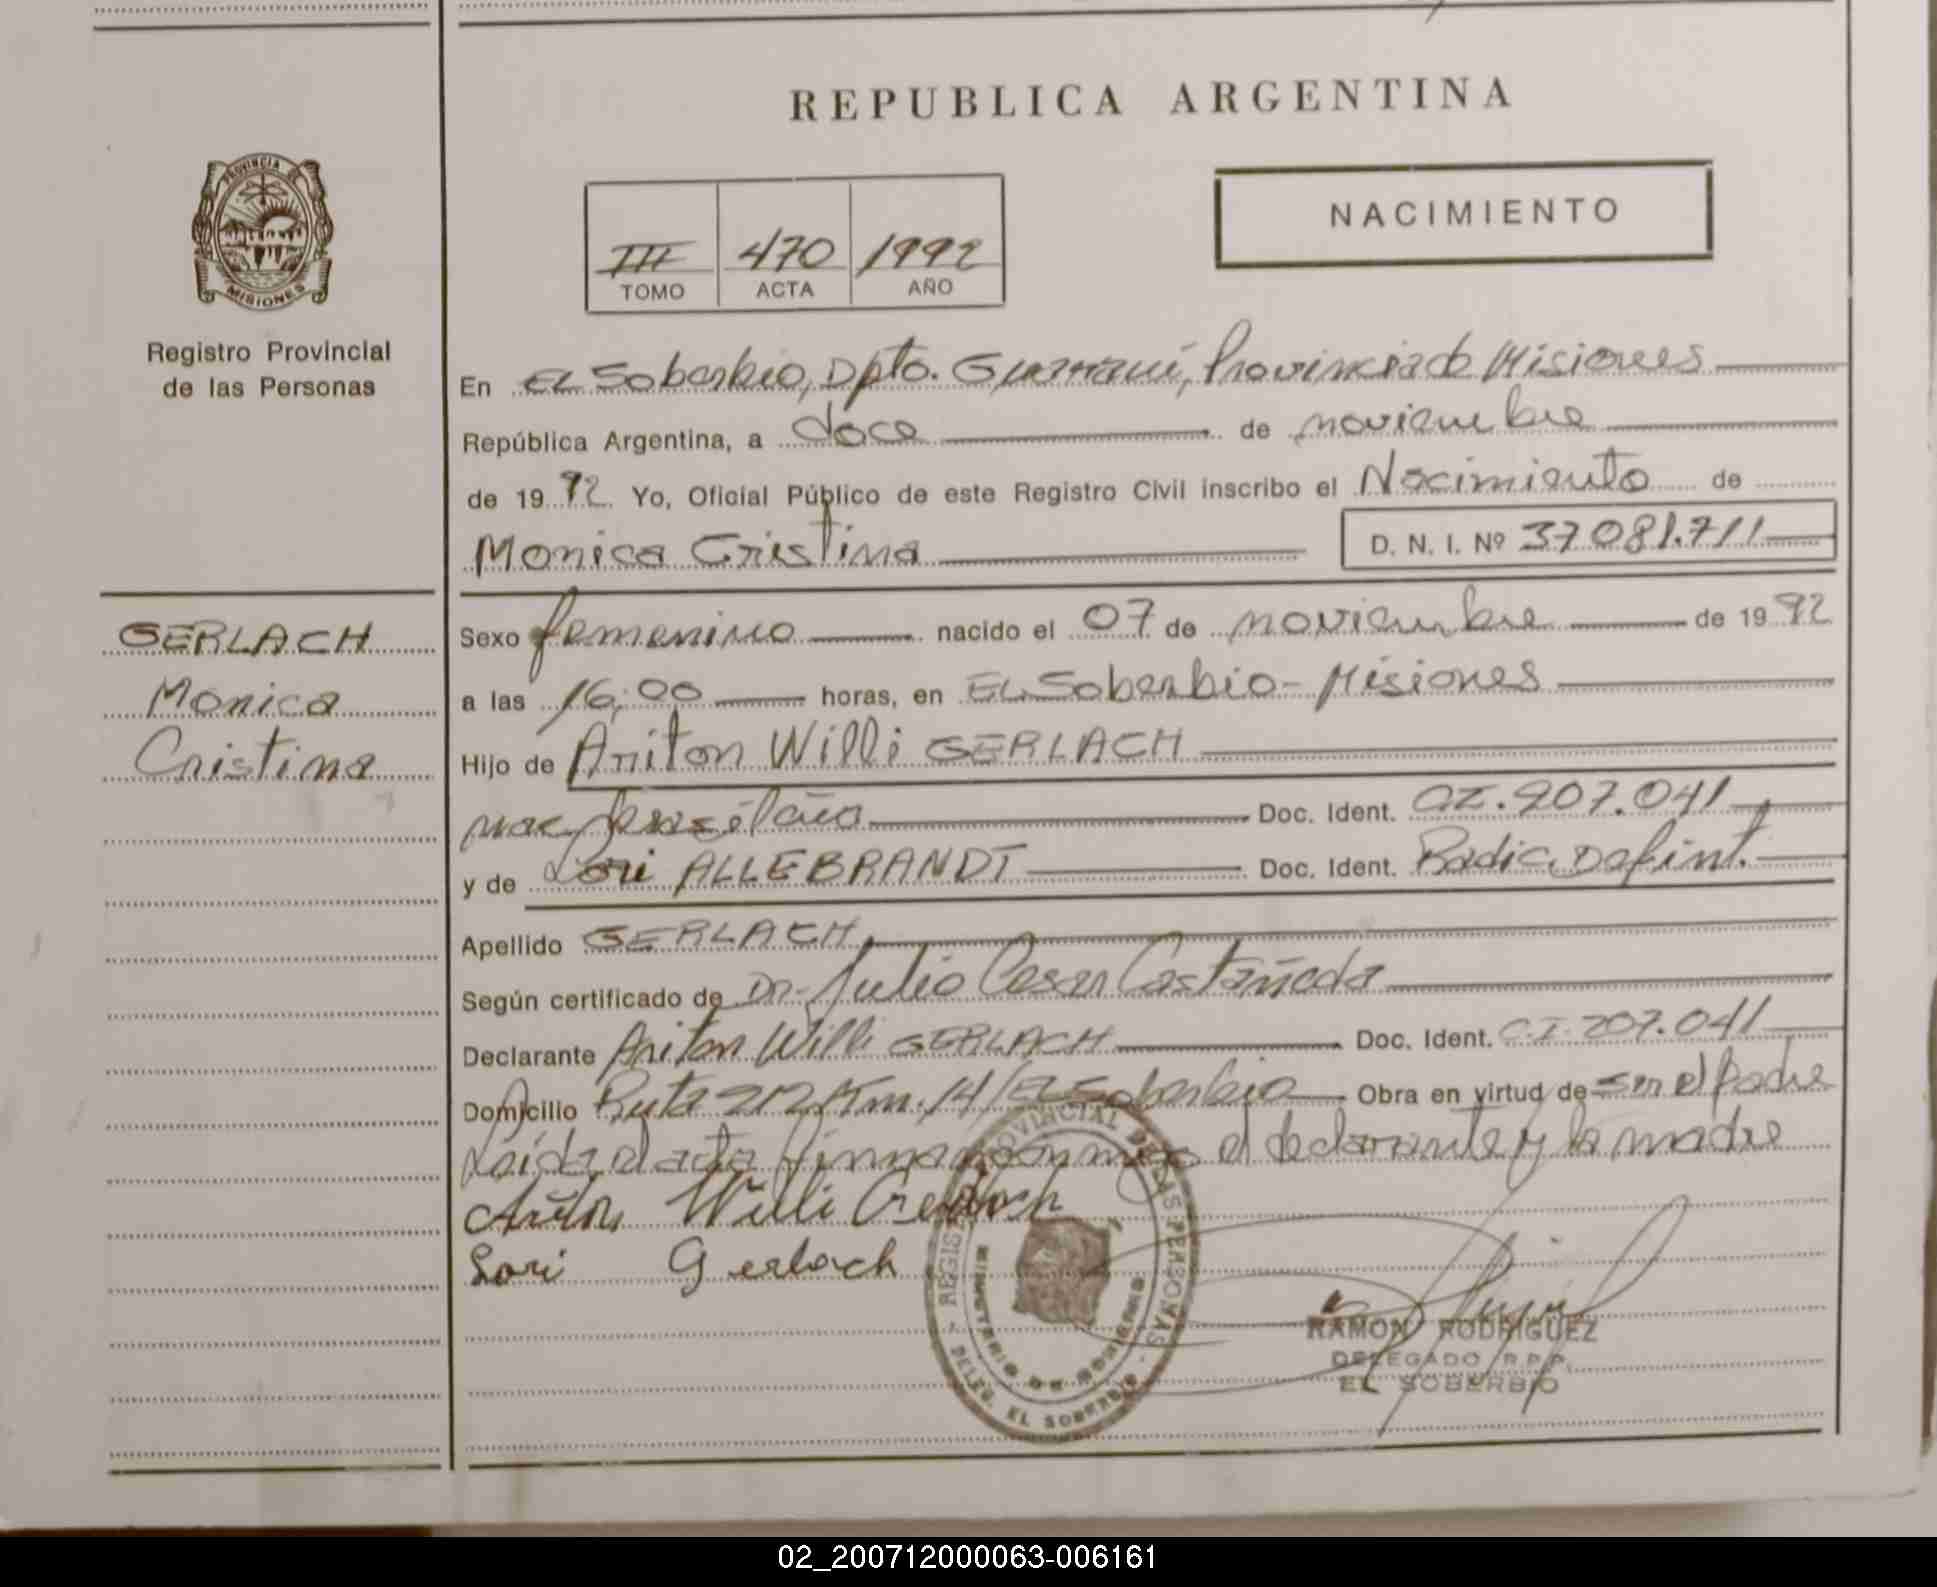 REPUBLICA ARGENTINA
NACIMIENTO
III 470 1992
TOMO ACTA AÑO
PROVINCIA DE
MISIONES
Registro Provincial
de las Personas
En EL Soberbio, Dpto. Guaraní, Provincia de Misiones
República Argentina, a doce de noviembre
de 19 92 Yo, Oficial Público de este Registro Civil inscribo el Nacimiento de
Monica Cristina D. N. I. Nº 37081.711
GERLACH
Monica
Cristina
Sexo femenino nacido el 07 de noviembre de 19 92
a las 16,00 horas, en EL Soberbio - Misiones
Hijo de Ariton Willi GERLACH
nac. brasileña Doc. Ident. CI. 207.041
y de Lori ALLEBRANDT Doc. Ident. Radic. Defint.
Apellido GERLACH
Según certificado de Dr. Julio Cesar Castañeda
Declarante Ariton Willi GERLACH Doc. Ident. C.I. 207.041
Domicilio Ruta 212 Km. 14/EL Soberbio Obra en virtud de ser el Padre
Leída el acta firman conmigo el declarante y la madre
Ariton Willi Gerlach
Lori Gerlach
REGISTRO PROVINCIAL DE LAS PERSONAS
MINISTERIO DE GOBIERNO
DELEG. EL SOBERBIO
RAMON RODRIGUEZ
DELEGADO R.P.P.
EL SOBERBIO
02_200712000063-006161